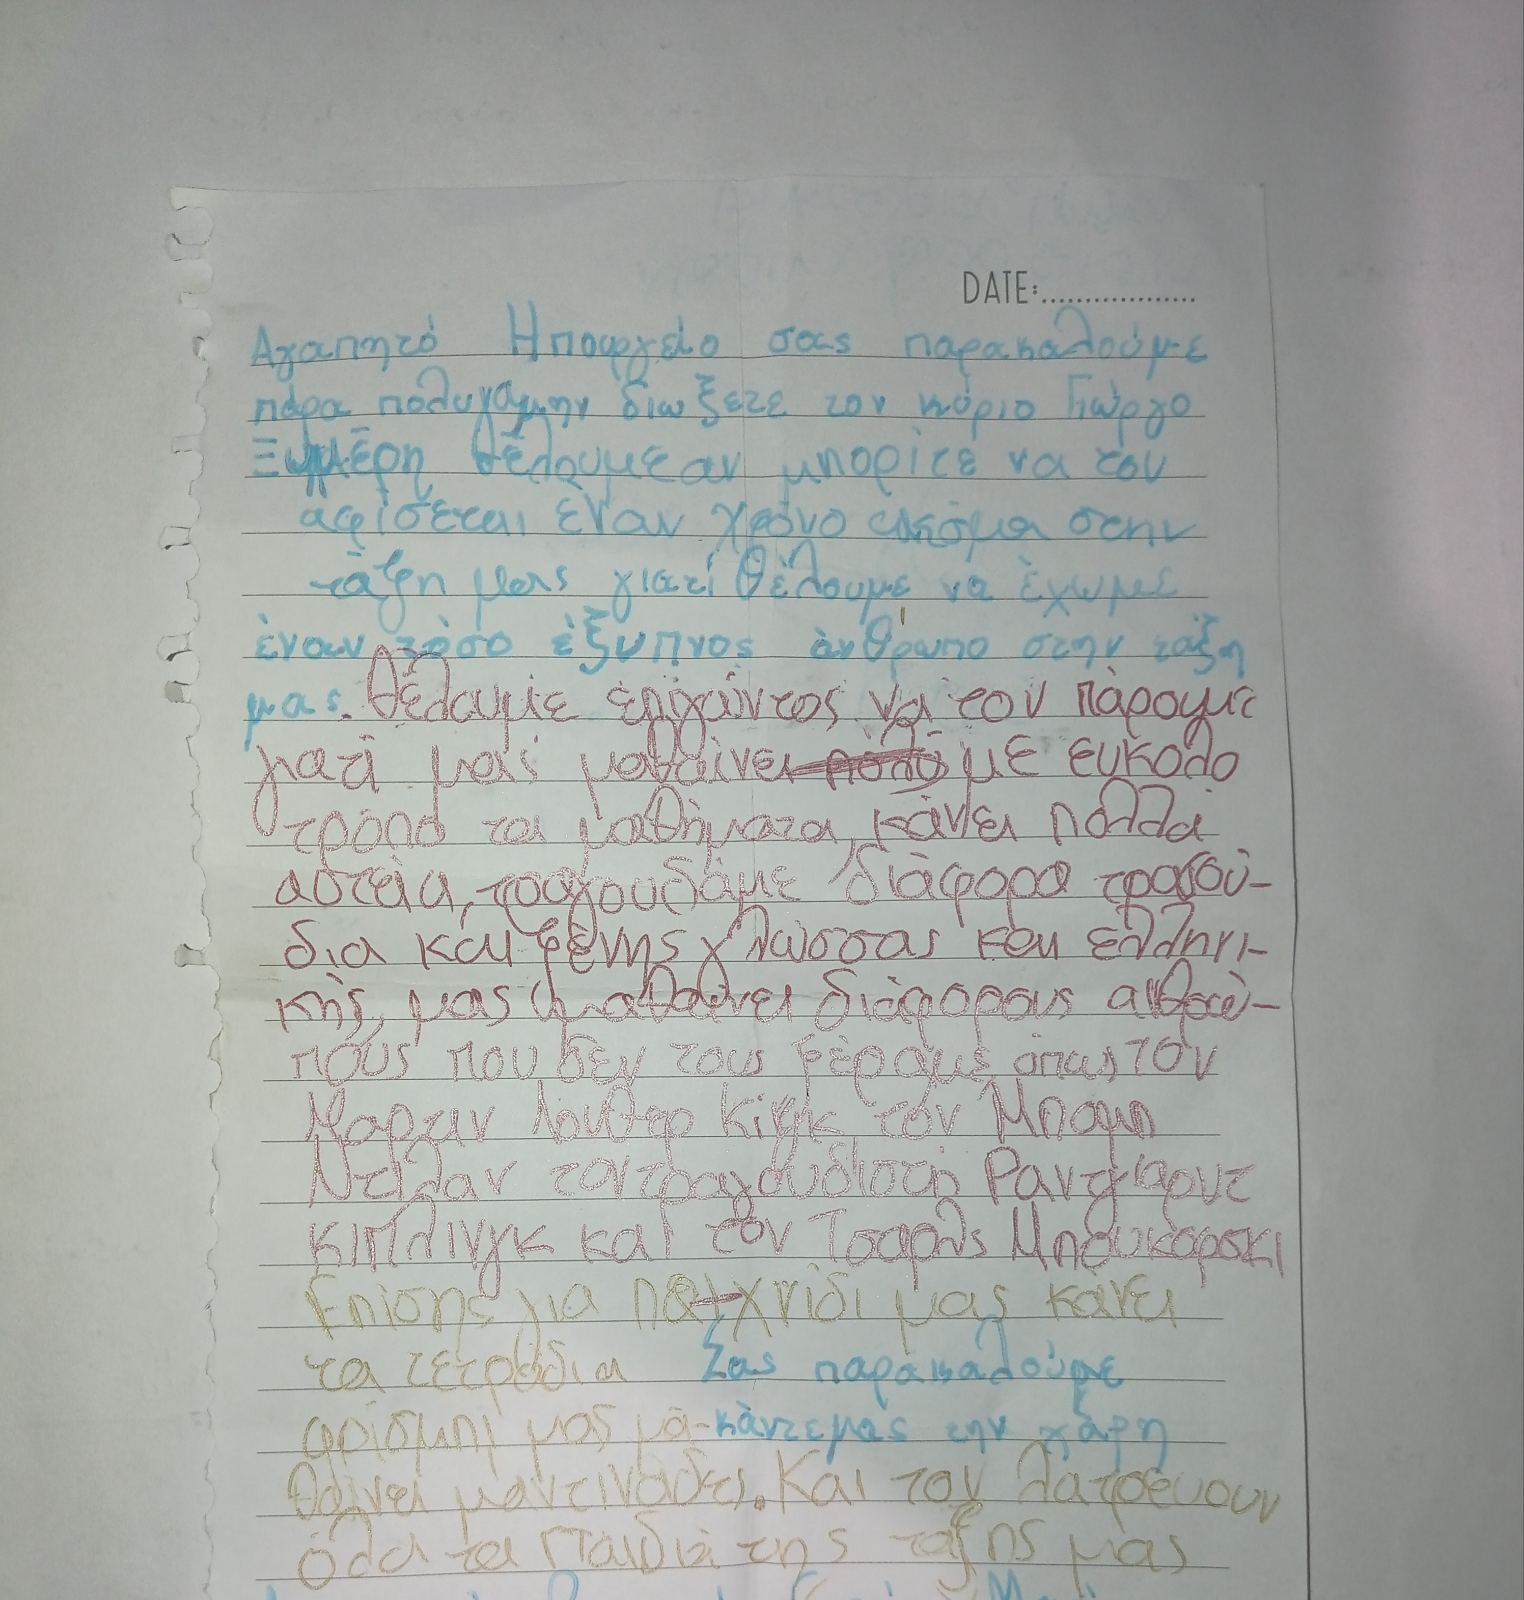 DATE:...................
Αγαπητό Ηπουργείο σας παρακαλούμε
πάρα πολυ να μην διωξετε τον κύριο Γιώργο
θέλουμε αν μπορίτε να του
αφίσεται έναν χρόνο ακόμα στην
τάξη μας γιατί θέλουμε να έχωμε
έναν τόσο έξυπνος άνθρωπο στην τάξη
μας. Θέλουμε να τον πάρουμε
γιατί μας μαθαίνει πολύ με ευκολο
τρόπο τα μαθήματα, κάνει πολλά
αστεία, τραγουδάμε διάφορα τραγού-
δια και ξένης γλώσσας και ελληνι-
κής, μας μαθαίνει διάφορους ανθρώ-
πους που δεν τους ξέραμε όπως τον
Μαρτιν Λουθερ Κινγκ τον Μπομπ
Ντίλαν τον τραγουδιστή Ραντγιαρντ
Κιπλινγκ και τον Τσαρλς Μπουκόφσκι
Επίσης για παιχνίδι μας κάνει
τα τετράδια Σας παρακαλούμε
μας μα- κάντε μας την χάρη
θαίνει μαντινάδες. Και τον λατρεύουν
όλα τα παιδιά της τάξης μας